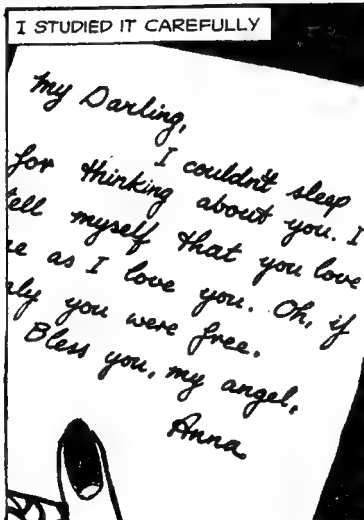 I STUDIED IT CAREFULLY
My Darling,
I couldn't sleep
for thinking about you. I
tell myself that you love
me as I love you. Oh, if
only you were free.
Bless you, my angel,
Anna